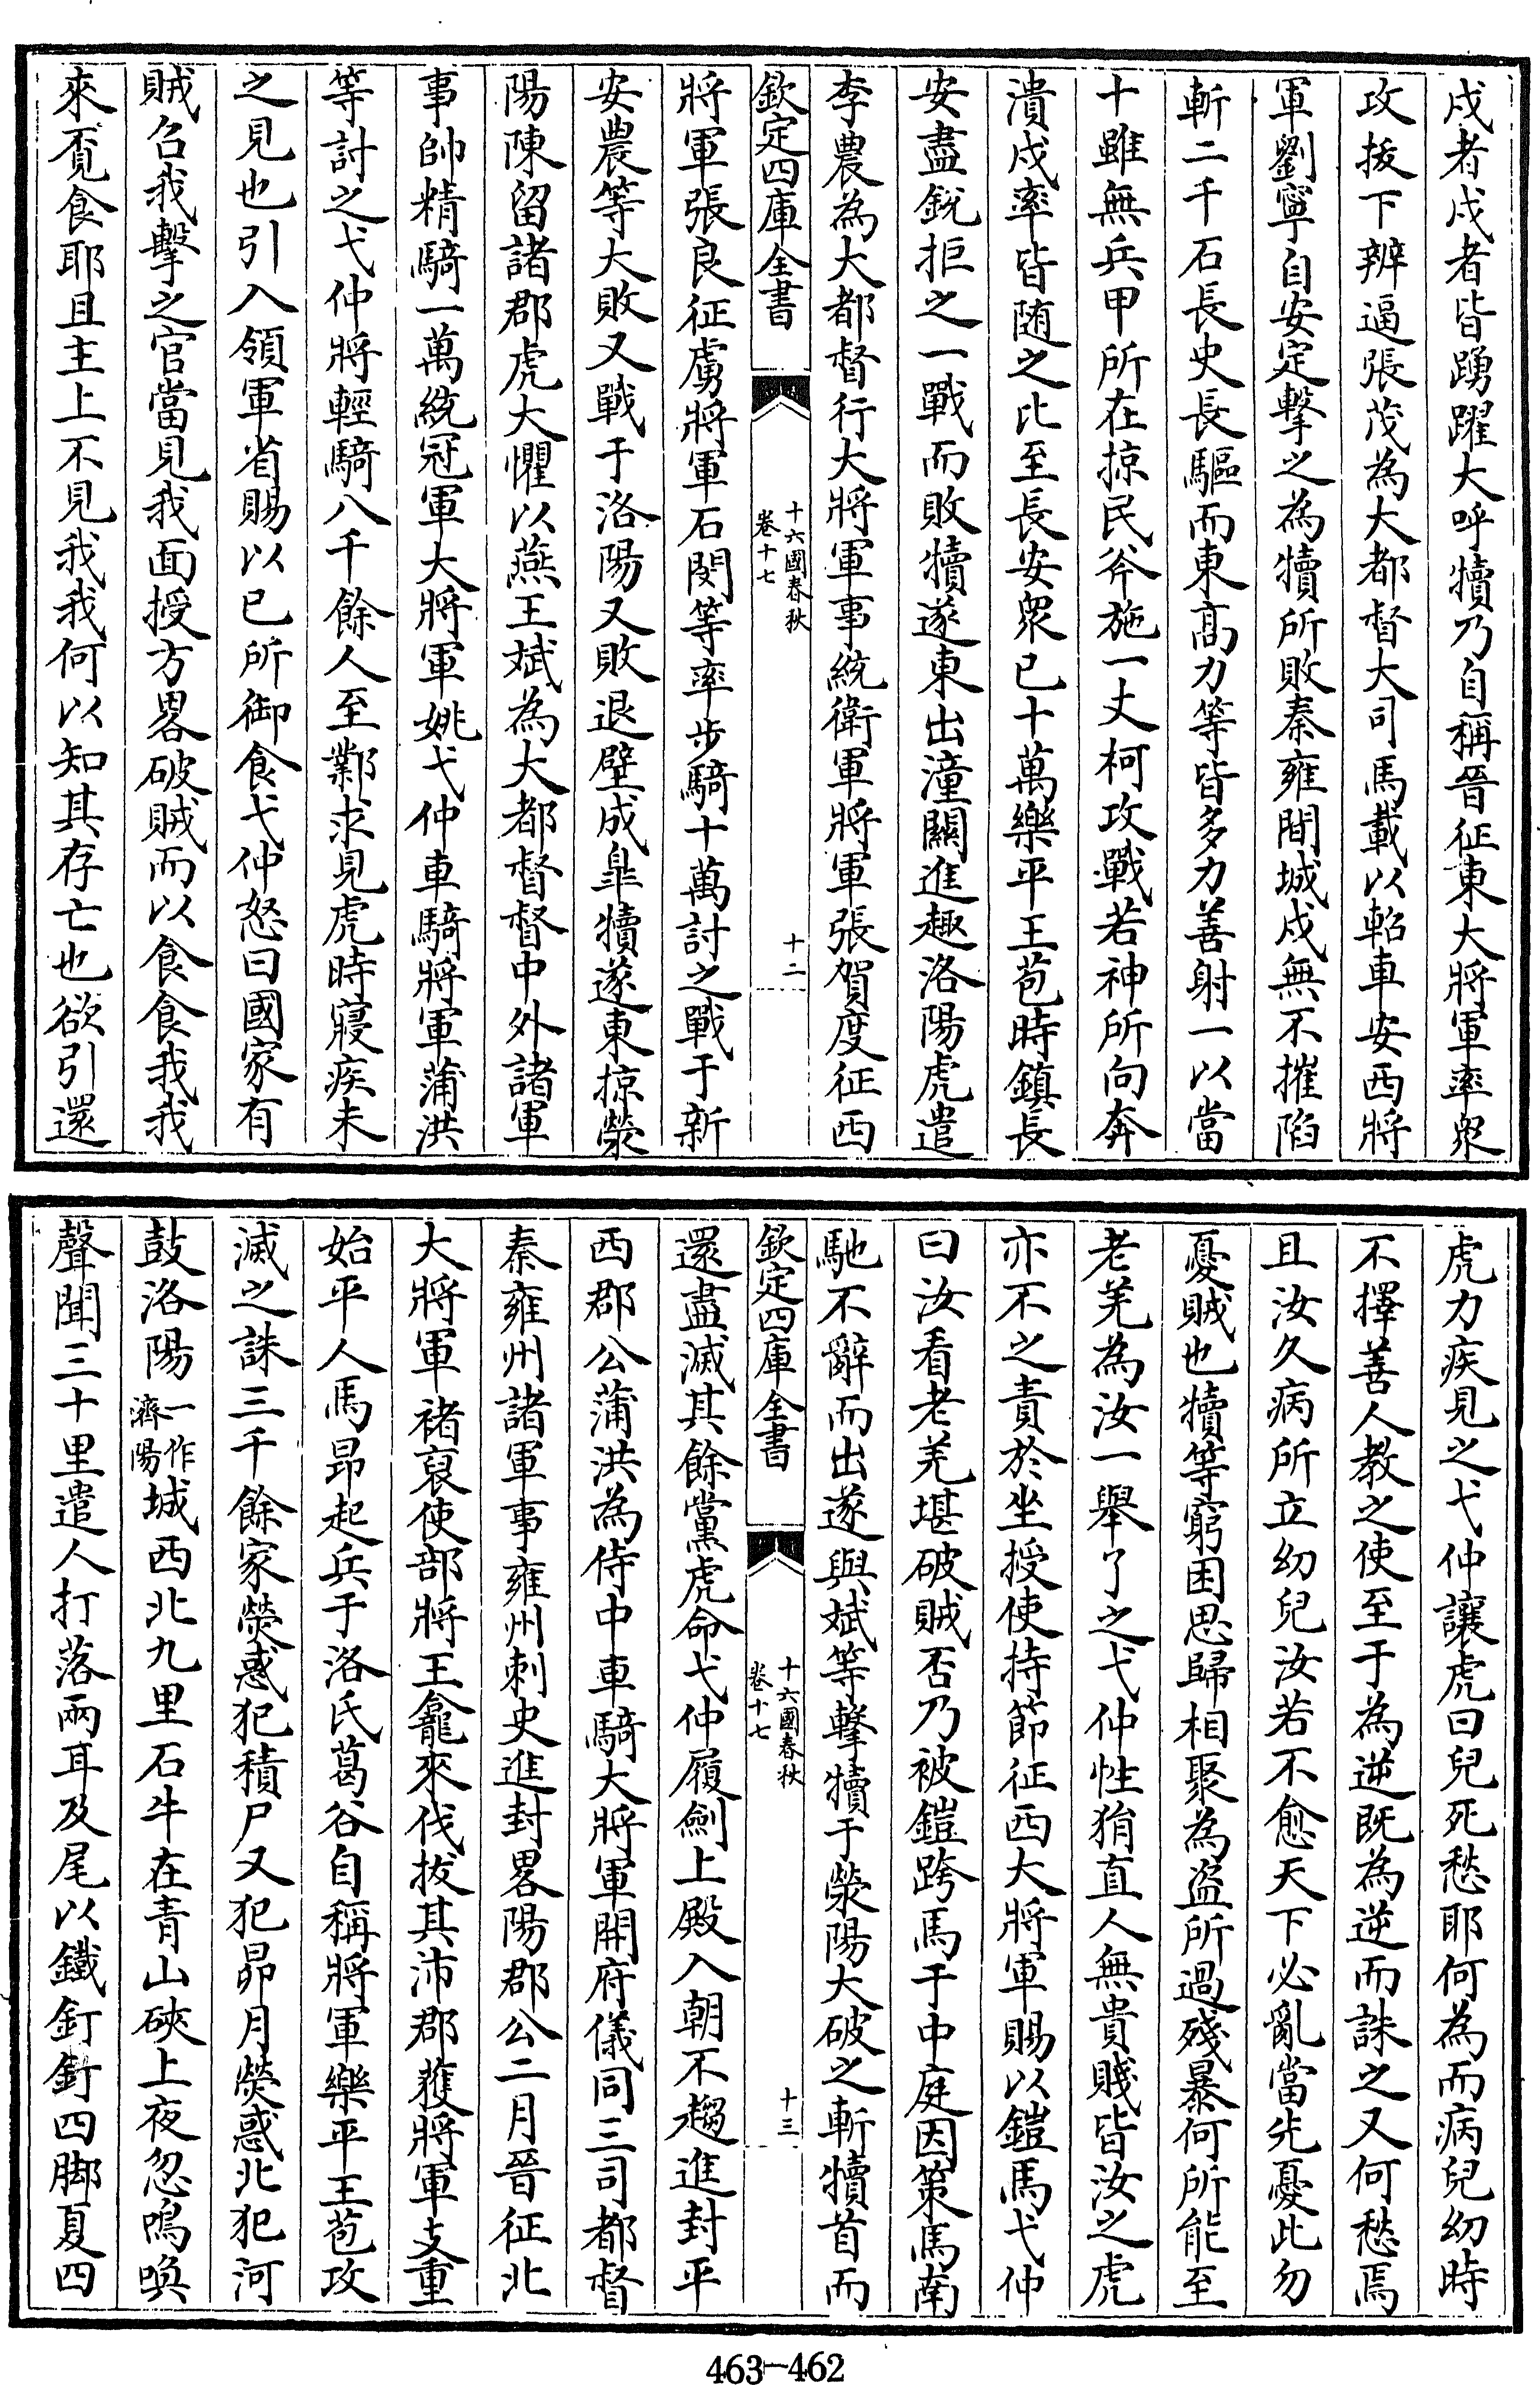 戍者戍者皆踴躍大呼犢乃自稱晉征東大將軍率衆
攻拔下辨逼張茂為大都督大司馬載以軺車安西將
軍劉寧自安定擊之為犢所敗秦雍間城戍無不摧陷
斬二千石長史長驅而東高力等皆多力善射一以當
十雖無兵甲所在掠民斧施一丈柯攻戰若神所向奔
潰戍率皆随之比至長安衆已十萬樂平王苞時鎮長
安盡銳拒之一戰而敗犢遂東出潼關進趣洛陽虎遣
李農為大都督行大將軍事統衛軍將軍張賀度征西
欽定四庫全書
十六國春秋
卷十七
十二
將軍張良征虜將軍石閔等率步騎十萬討之戰于新
安農等大敗又戰于洛陽又敗退壁成臯犢遂東掠滎
陽陳留諸郡虎大懼以燕王斌為大都督督中外諸軍
事帥精騎一萬統冠軍大將軍姚弋仲車騎將軍蒲洪
等討之弋仲將輕騎八千餘人至鄴求見虎時寢疾未
之見也引入領軍省賜以已所御食弋仲怒曰國家有
賊召我擊之官當見我面授方畧破賊而以食食我我
來覓食耶且主上不見我我何以知其存亡也欲引還
虎力疾見之弋仲讓虎曰兒死愁耶何為而病兒幼時
不擇善人教之使至于為逆既為逆而誅之又何愁焉
且汝久病所立幼兒汝若不愈天下必亂當先憂此勿
憂賊也犢等窮困思歸相聚為盗所過殘暴何所能至
老羌為汝一舉了之弋仲性狷直人無貴賤皆汝之虎
亦不之責於坐授使持節征西大將軍賜以鎧馬弋仲
曰汝看老羌堪破賊否乃被鎧跨馬于中庭因策馬南
馳不辭而出遂與斌等擊犢于滎陽大破之斬犢首而
欽定四庫全書
十六國春秋
卷十七
十三
還盡滅其餘黨虎命弋仲履劍上殿入朝不趨進封平
西郡公蒲洪為侍中車騎大將軍開府儀同三司都督
秦雍州諸軍事雍州刺史進封畧陽郡公二月晉征北
大將軍褚裒使部將王龕來伐拔其沛郡獲將軍支重
始平人馬昂起兵于洛氏葛谷自稱將軍樂平王苞攻
滅之誅三千餘家熒惑犯積尸又犯昴月熒惑北犯河
鼓洛陽一作濟陽城西北九里石牛在青山硤上夜忽鳴喚
聲聞三十里遣人打落兩耳及尾以鐵釘釘四脚夏四
463-462